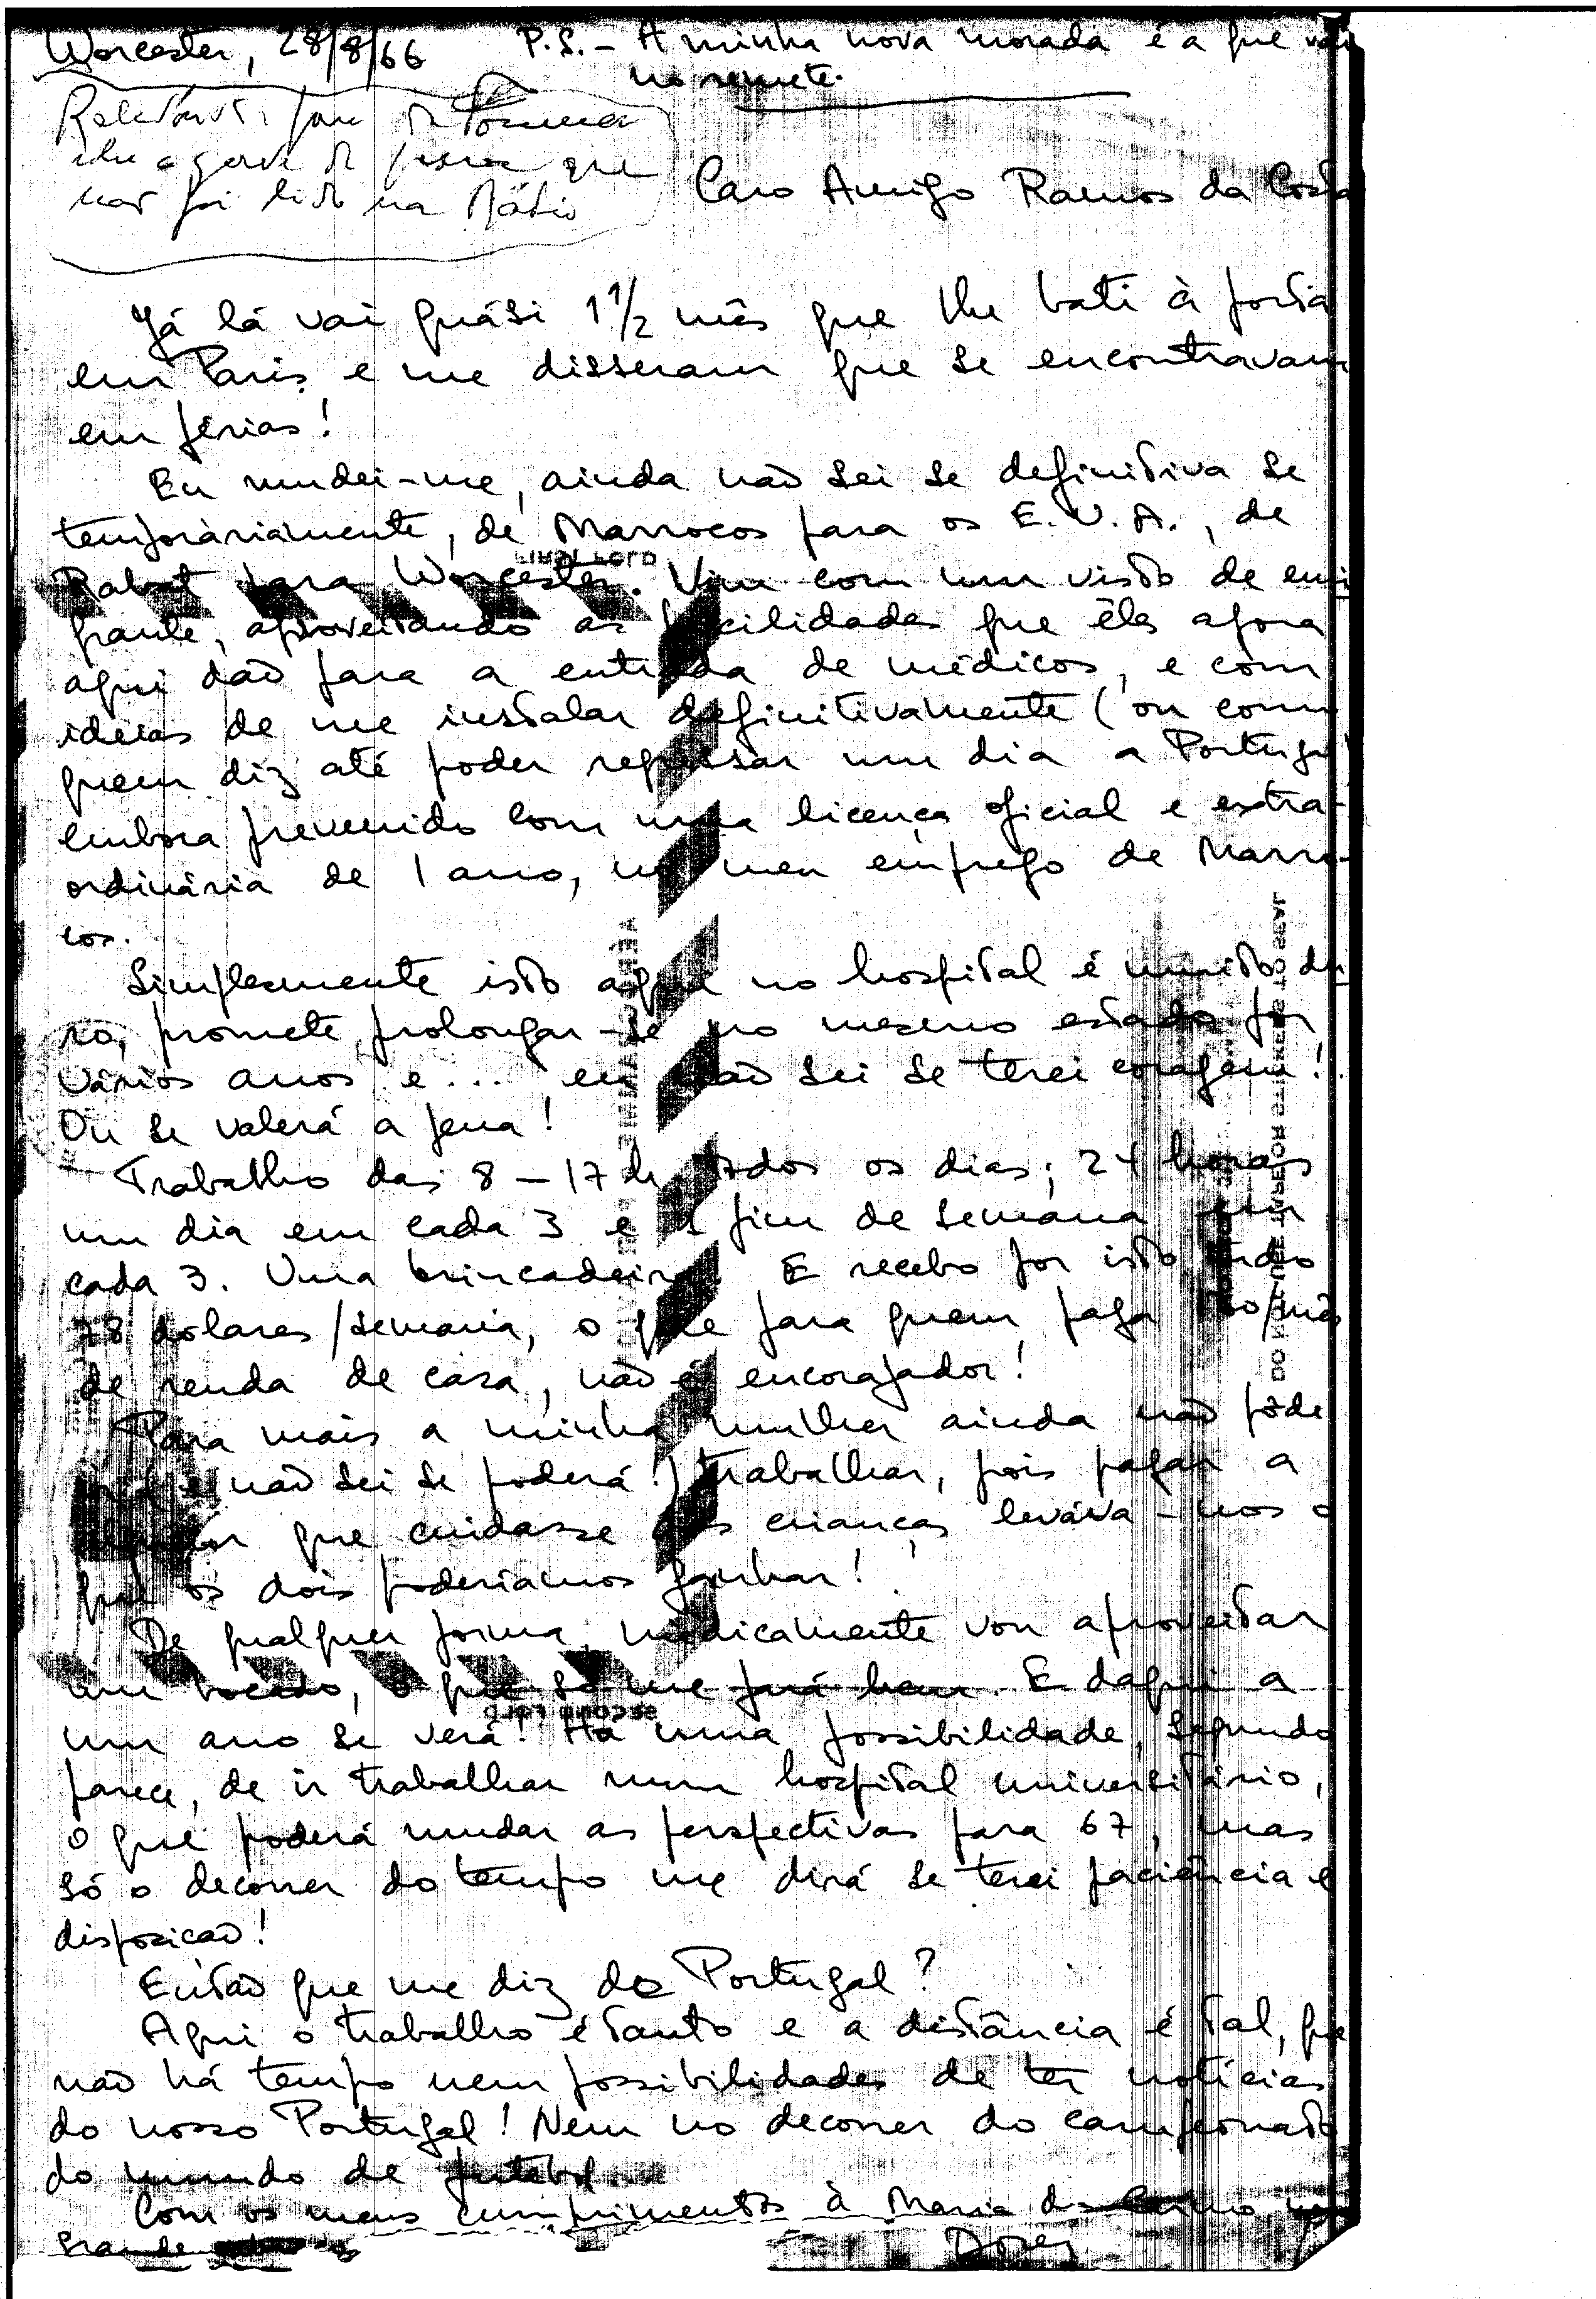 Worcester, 28/8/66
P.S. - A minha nova morada é a que vai
no remete.
que
não foi lido na Rádio
Caro Amigo Ramos da Costa
Já lá vai quási 1 1/2 mês que lhe bati à porta
em Paris e me disseram que se encontravam
em férias!
Eu mudei-me, ainda não sei se definitiva se
temporàriamente, de Marrocos para os E.U.A., de
Rabat para Worcester. Vim com um visto de emi
grante, aproveitando as facilidades que êles agora
aqui dão para a entrada de médicos, e com
ideias de me instalar definitivamente (ou como
quem diz até poder regressar um dia a Portugal
embora prevenido com uma licença oficial e extra-
ordinária de 1 ano, no meu emprego de Marro-
cos.
Simplesmente isto aqui no hospital é muito du
ro, promete prolongar-se no mesmo estado por
vários anos e... eu não sei se terei coragem!
Ou se valerá a pena!
Trabalho das 8-17 h todos os dias; 24 horas
um dia em cada 3 e 1 fim de semana em
cada 3. Uma brincadeira E recebo por isto tudo
78 dolares/semana, o que para quem paga /mês
de renda de casa, não é encorajador!
Para mais a minha mulher ainda não pôde
(e não sei se poderá!) trabalhar, pois pagar a
alguém que cuidasse das crianças levava-nos o
que os dois poderiamos ganhar!
De qualquer forma, medicamente vou aproveitar
um bocado, o que só me fará bem. E daqui a
um ano se verá! Há uma possibilidade, segundo
parece, de ir trabalhar num hospital universitário,
o que poderá mudar as perspectivas para 67, mas
só o decorrer do tempo me dirá se terei paciência e
disposição!
Então que me diz de Portugal?
Aqui o trabalho é tanto e a distância é tal, que
não há tempo nem possibilidades de ter notícias
do nosso Portugal! Nem no decorrer do campeonato
do mundo de futebol
Com os meus cumprimentos à Maria do
grande
DO NOT USE TAPE OR STICKERS TO SEAL
SECOND FOLD